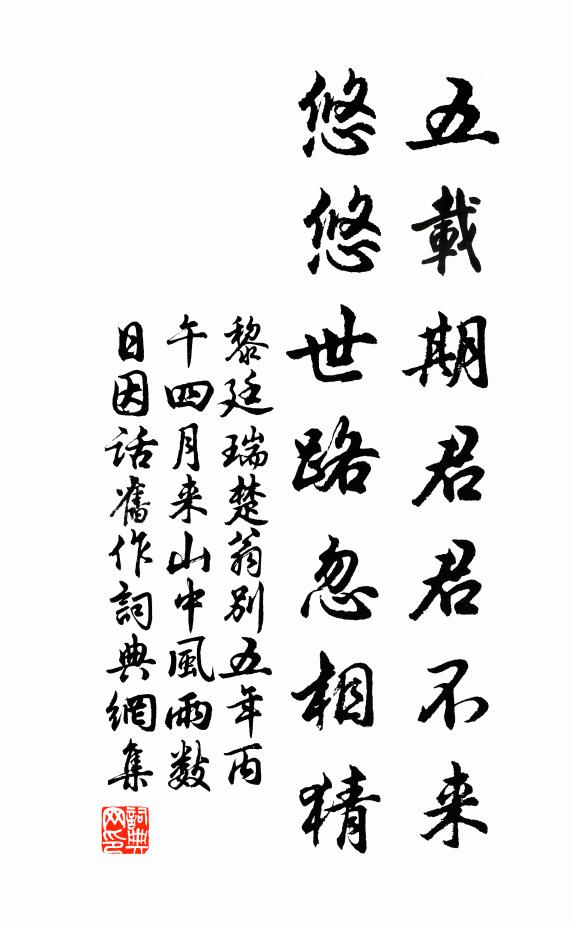 五載期君君不来
悠悠世路忽相猜
黎廷瑞楚翁别五年丙
午四月来山中風雨数
日因話舊作詞典網集
詞典
网印